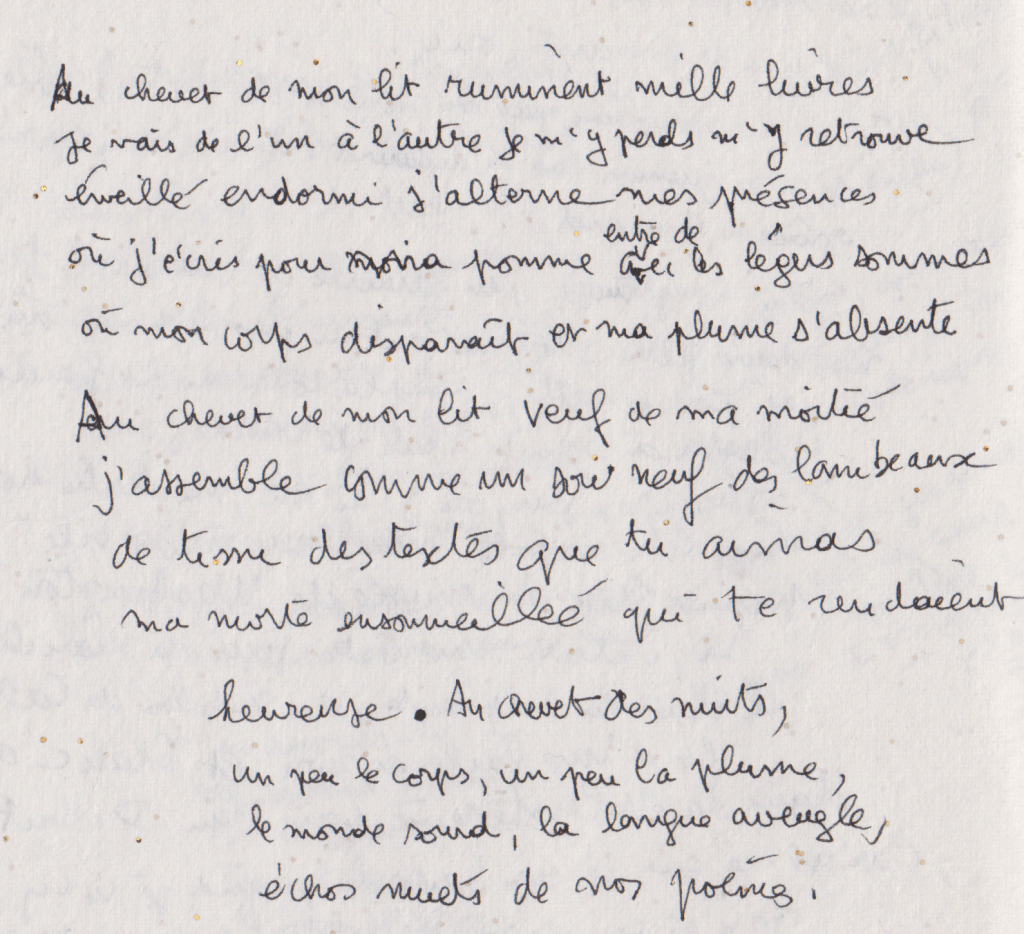 Au chevet de mon lit ruminent mille livres
je vais de l'un à l'autre je m'y perds m'y retrouve
éveillé endormi j'alterne mes présences
entre de
où j'écris pour pomme avec les légers sommes
où mon corps disparaît et ma plume s'absente
Au chevet de mon lit veuf de ma moitié
j'assemble comme un sou neuf des lambeaux
de tissu des textes que tu aimas
ma morte ensommeillée qui te rendaient
heureuse. Au chevet des nuits,
un peu le corps, un peu la plume,
le monde sourd, la langue aveugle,
échos muets de nos poèmes.